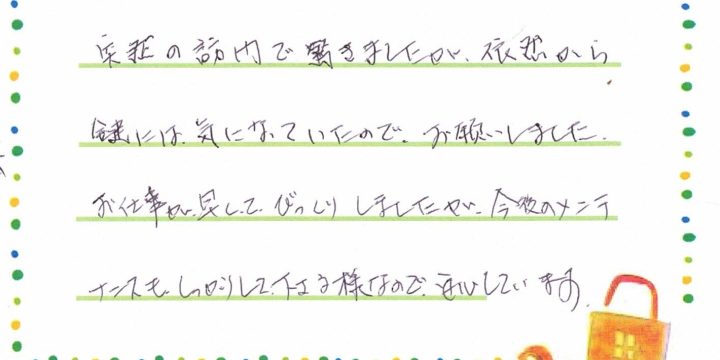 突然の訪問で驚きましたが、依然から
鍵には、気になっていたので、お願いしました。
お仕事が、早くて、びっくりしましたが、今後のメンテ
ナンスも、しっかりして下さる様なので、安心しています。